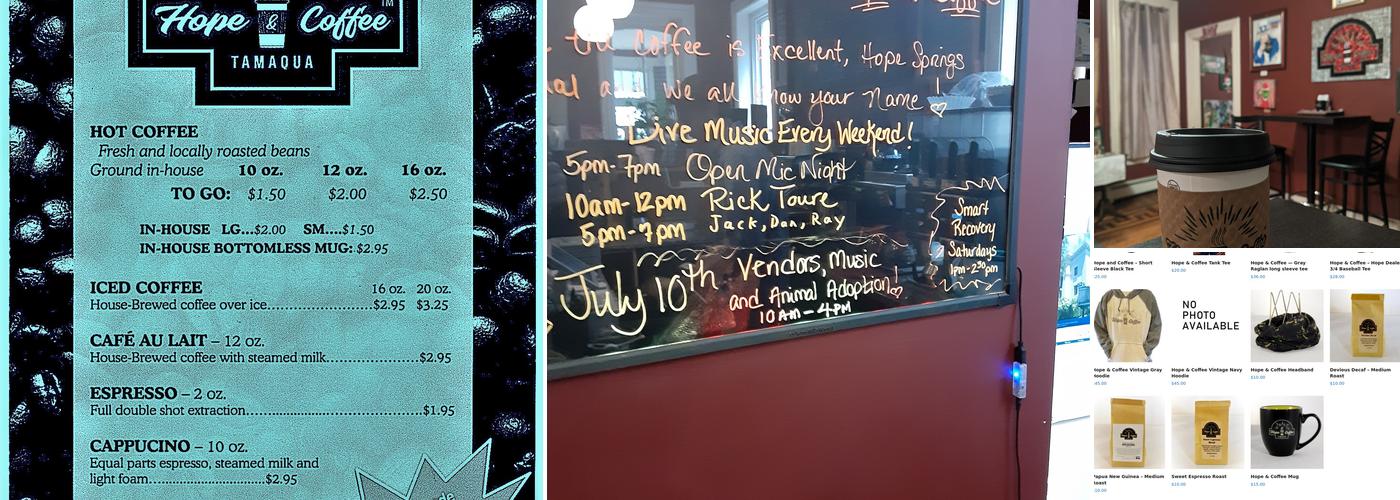 Hope & Coffee
TM
TAMAQUA
HOT COFFEE
Fresh and locally roasted beans
Ground in-house 10 oz. 12 oz. 16 oz.
TO GO: $1.50 $2.00 $2.50
IN-HOUSE LG...$2.00 SM....$1.50
IN-HOUSE BOTTOMLESS MUG: $2.95
ICED COFFEE 16 oz. 20 oz.
House-Brewed coffee over ice...................$2.95 $3.25
CAFÉ AU LAIT – 12 oz.
House-Brewed coffee with steamed milk.....................$2.95
ESPRESSO – 2 oz.
Full double shot extraction........................................$1.95
CAPPUCINO – 10 oz.
Equal parts espresso, steamed milk and
light foam...........................$2.95
the Coffee is Excellent, Hope Springs
we all know your Name!
Live Music Every Weekend!
5pm-7pm Open Mic Night
10am-12pm Rick Toure
5pm-7pm Jack, Dan, Ray
Smart
Recovery
Saturdays
1pm-2:30pm
July 10th Vendors, Music
and Animal Adoption!
10AM-4PM
Hope and Coffee - Short
Sleeve Black Tee
Hope & Coffee Tank Tee
$20.00
Hope & Coffee — Gray
Raglan long sleeve tee
Hope & Coffee - Hope Dealer
3/4 Baseball Tee
NO
PHOTO
AVAILABLE
Hope & Coffee Vintage Gray
Hoodie
$45.00
Hope & Coffee Vintage Navy
Hoodie
$45.00
Hope & Coffee Headband
$10.00
Devious Decaf - Medium
Roast
$10.00
Papua New Guinea - Medium
Roast
Sweet Espresso Roast
$10.00
Hope & Coffee Mug
$15.00